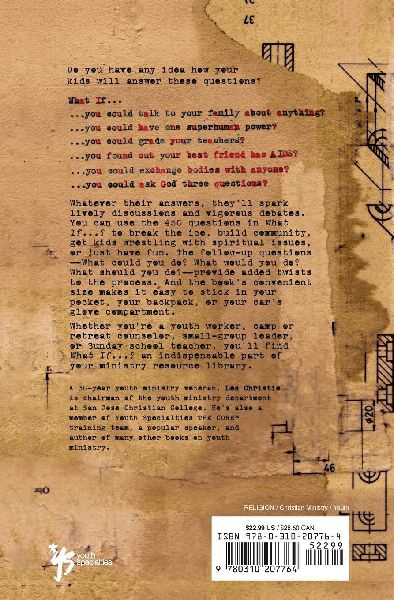 37
Do you have any idea how your
kids will answer these questions?
What If...
...you could talk to your family about anything?
...you could have one superhuman power?
...you could grade your teachers?
...you found out your best friend has AIDS?
...you could exchange bodies with anyone?
...you could ask God three questions?
Whatever their answers, they'll spark
lively discussions and vigorous debates.
You can use the 450 questions in What
If...? to break the ice, build community,
get kids wrestling with spiritual issues,
or just have fun. The follow-up questions
—What could you do? What would you do?
What should you do?—provide added twists
to the process. And the book's convenient
size makes it easy to stick in your
pocket, your backpack, or your car's
glove compartment.
Whether you're a youth worker, camp or
retreat counselor, small-group leader,
or Sunday school teacher, you'll find
What If...? an indispensable part of
your ministry resource library.
A 30-year youth ministry veteran, Les Christie
is chairman of the youth ministry department
at San Jose Christian College. He's also a
member of Youth Specialties THE CORE
training team, a popular speaker, and
author of many other books on youth
ministry.
ø20
46
RELIGION / Christian Ministry / Youth
$22.99 US / $28.50 CAN
ISBN 978-0-310-20776-4
52299
9 780310 207764
ys youth
specialties